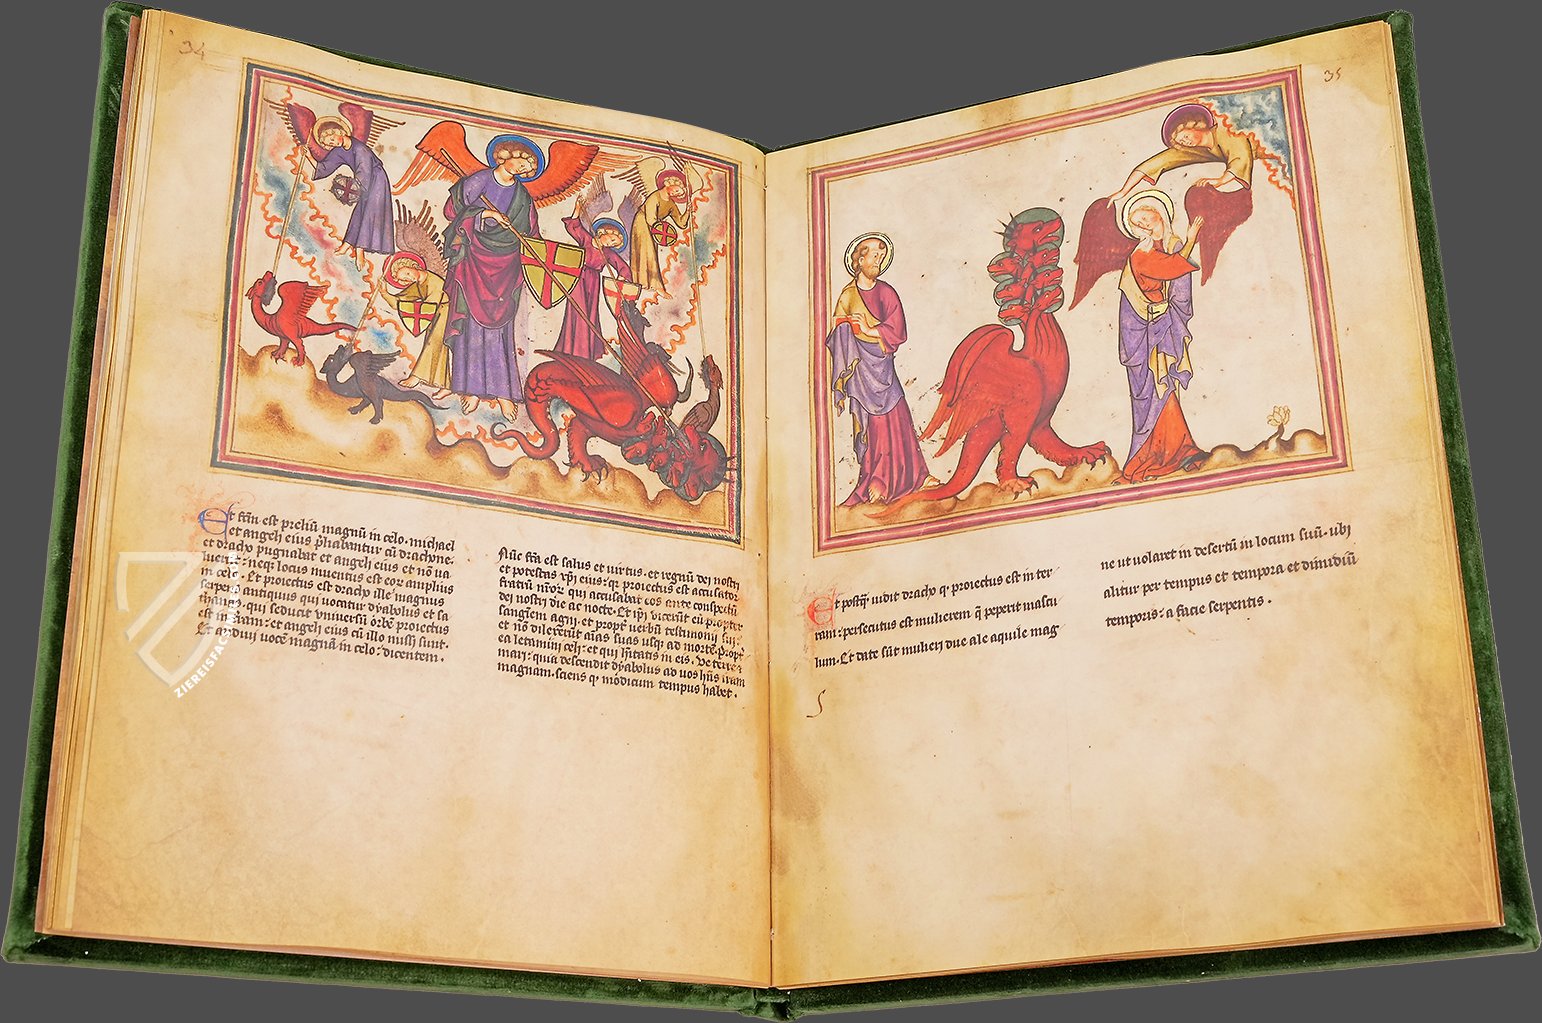 34
Et fc̄m est preliū magnū in celo. michael
et angeli eius p̄liabantur cū drachone.
et dracho pugnabat et angeli eius et nō ua
luerūt: neqꝫ locus inuentus est eoꝝ amplius
in celo. Et proiectus est dracho ille magnus
serpens antiquus qui uocatur dyabolus et sa
thanas. qui seducit vniuersū orbē proiectus
est in terram: et angeli eius cū illo missi sunt.
Et audiui uocē magnā in celo: dicentem.
Nūc fc̄a est salus et uirtus. et regnū dei nostri
et potestas xp̄i eius: qꝛ proiectus est accusator
fratrū nr̄oꝝ qui accusabat eos ante conspectū
dei nostri die ac nocte. Et ip̄i vicerūt eū propter
sangīem agni. et propt̄ uerbū testimonii sui:
et nō dilexerūt aīas suas usqꝫ ad mortē. propt̄
ea letamini celi: et qui hītatis in eis. Ve terre
mari: quia descendit dyabolus ad uos hn̄s iram
magnam. sciens qꝫ modicum tempus habet.
35
Et postqꝫ uidit dracho qꝫ proiectus est in ter
ram: persecutus est mulierem q̄ peperit mascu
lum. Et date sūt mulieri due ale aquile mag
ne ut uolaret in desertū in locum suū. ubi
alitur per tempus et tempora et dimidiū
temporis: a facie serpentis.
ZIEREISFACSIMILES.COM